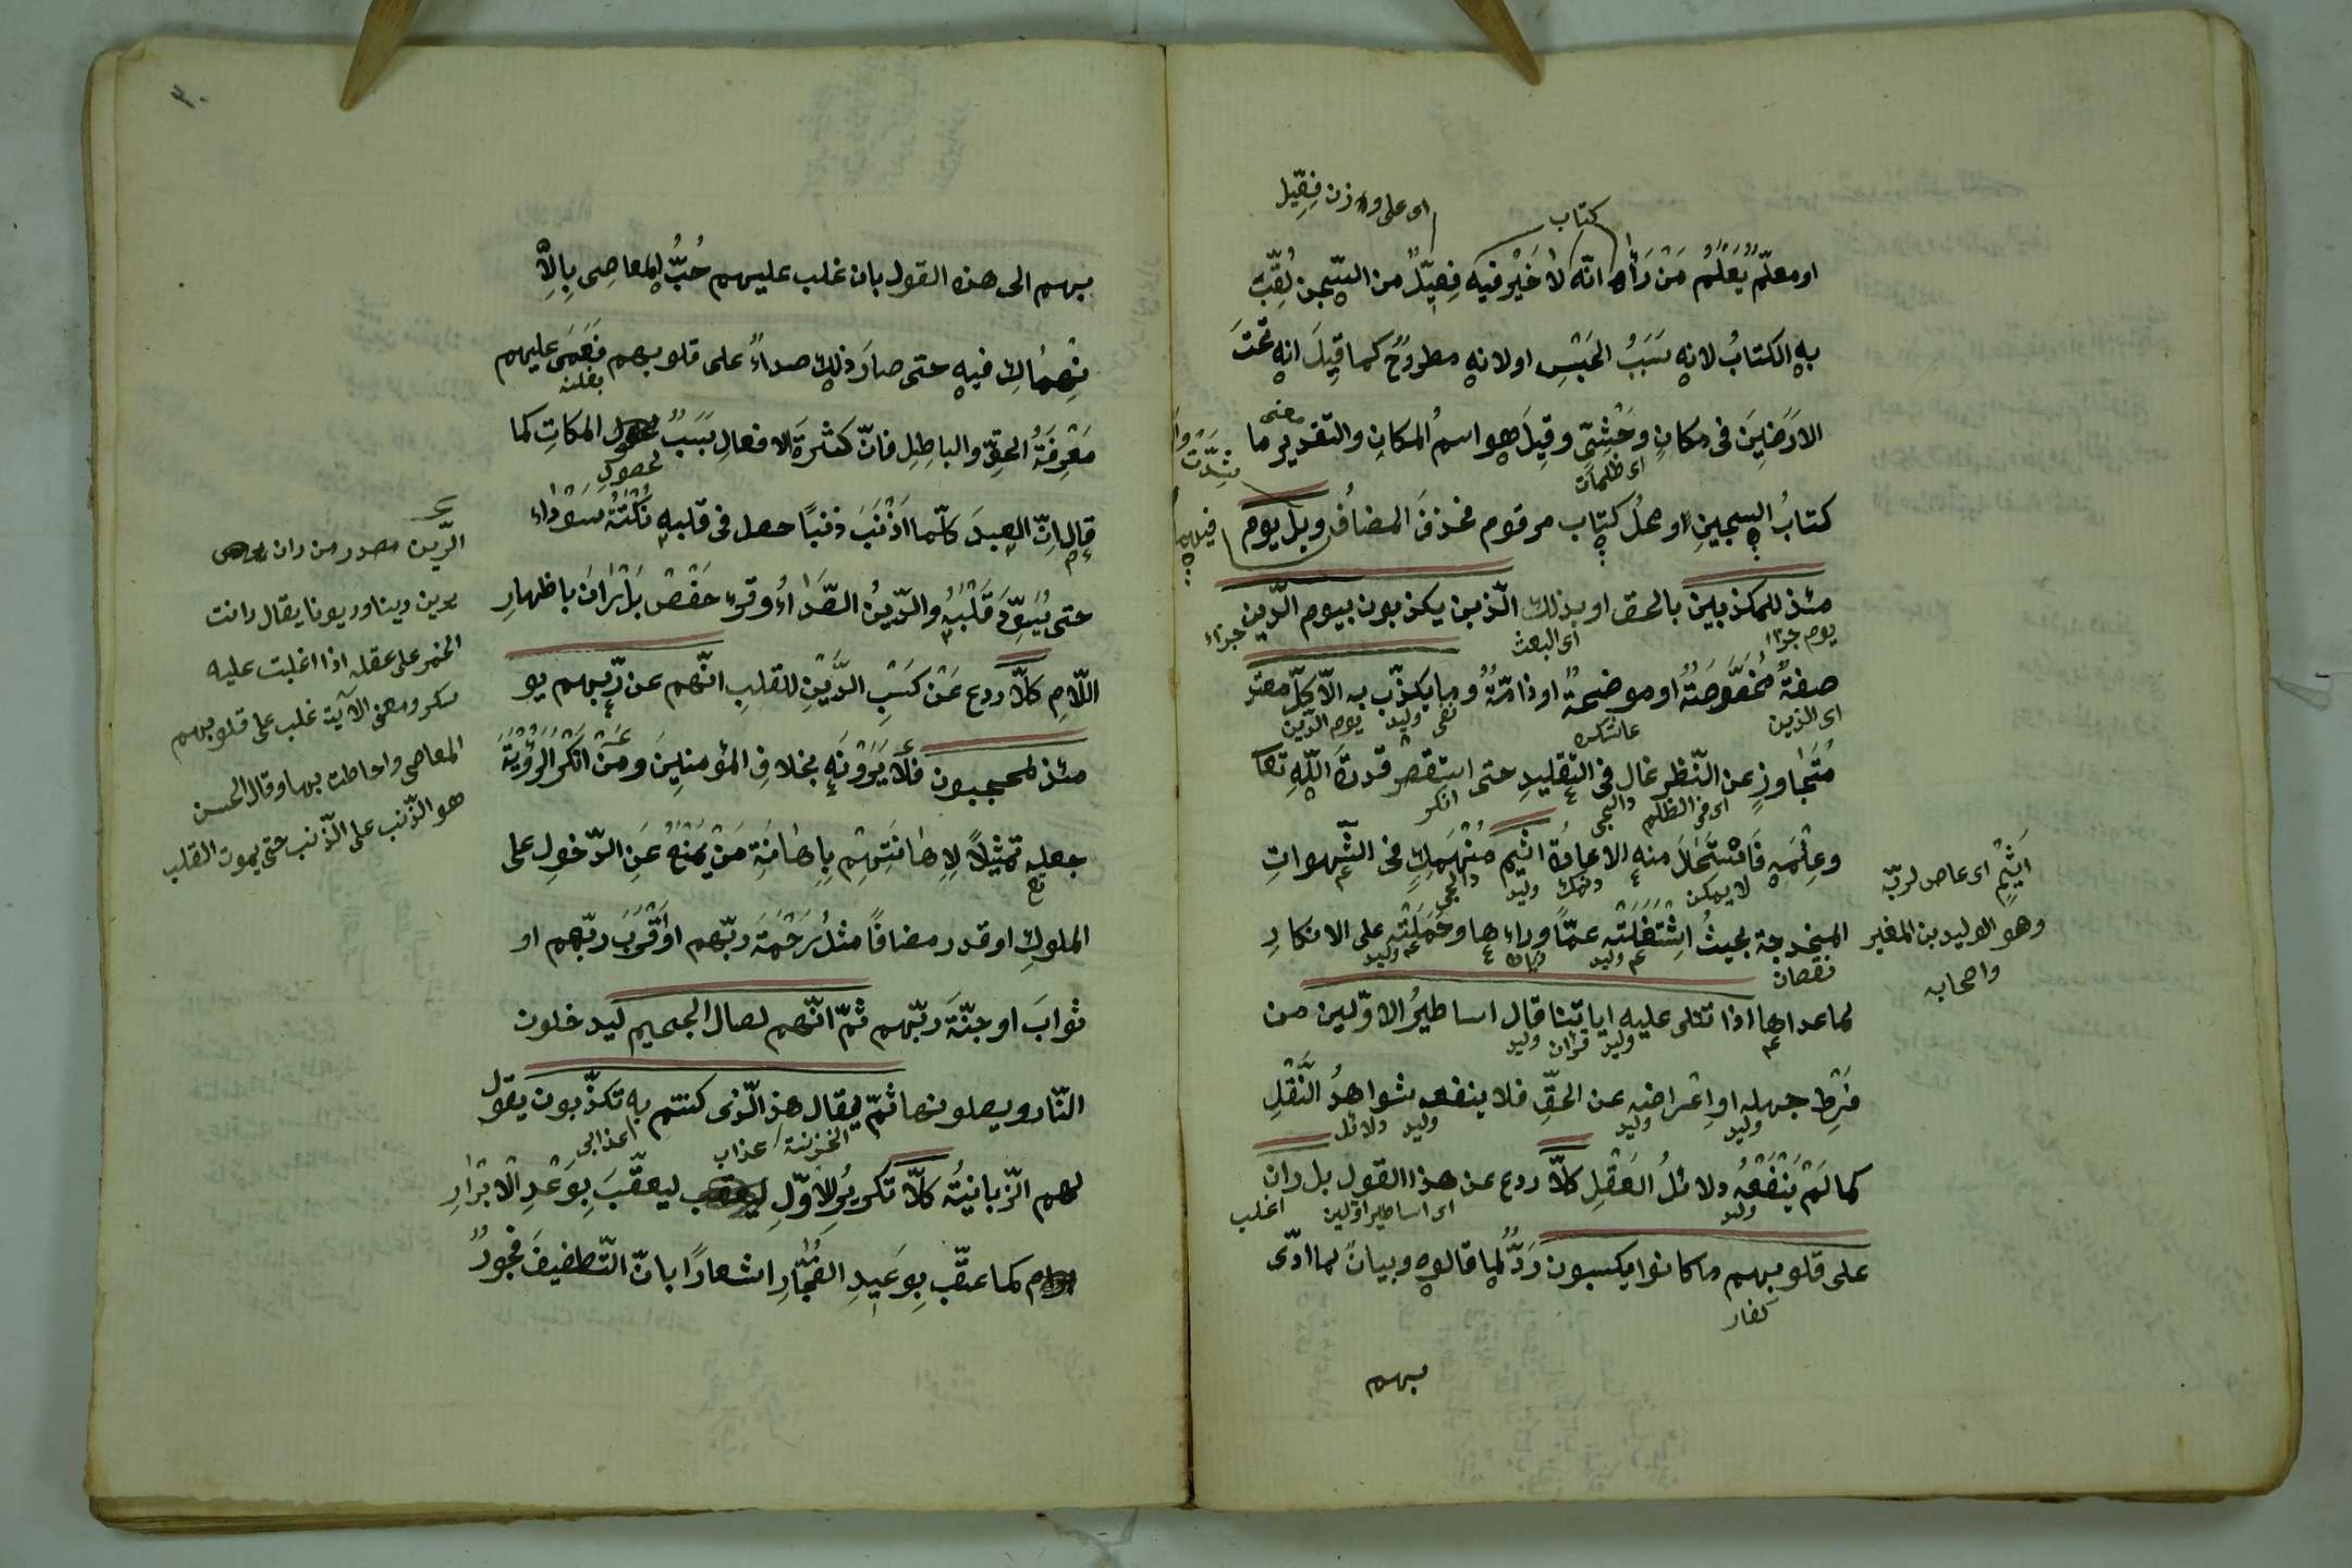 اى على وزن فِعِّيل
كتاب
او معلّم يُعْلَمُ مَنْ رَأٰه انّه لا خَيْرَ فيه فِعِيّلٌ من السّجن لُقِّبَ
به الكتابُ لانه سَبَبُ الحَبْسِ او لانه مطروحٌ كما قِيلَ انه تحتَ
الارَضِينَ فى مكانٍ وحْشِىٍّ وقِيلَ هو اسمُ المكانِ والتقدير ما
معنى
اى ظلمات
كتابُ السجينِ او محلّ كتاب مرقوم فحذفَ المضافُ ويل يوم
مئذ للمكذبين بالحق او بذلك الّذين يكذبون بيوم الّدين
يوم جزا اى البعث جزاء
صفةٌ مُخَصِّصَةٌ او موضحةٌ او ذامّةٌ وما يكذّب به الّا كلّ معتد
اى الذين نفى وليد يوم الدّين
مُتَجاوِزٍ عن النّظر غالٍ فى التقليدِ حتى استقصر قدرةَ اللّهِ تعا
اى فى الظلم انكر
وعِلْمَه فَاسْتَحَالَ منه الاعادةُ اثيم مُنْهَمِكٍ فى الشّهواتِ
لا يمكن وليد
المخدجة بحيثُ اِشْتَغَلَتْه عمّا وراءها وحَمَلَتْه على الانكارِ
نقصان وليد وليد
لما عداها اذا تتلى عليه اياتنا قال اساطيرُ الاوّلين من
وليد قران وليد
فَرْطِ جهله واِعْراضه عن الحقِّ فلا ينفعه شواهدُ النَّقْلِ
وليد وليد وليد دلائل
كما لَمْ يَنْفَعْه دلائلُ العَقْلِ كلّا ردع عن هذا القول بل ران
وليد اى اساطير اوّلين اغلب
على قلوبهم ما كانوا يكسبون رَدٌّ لما قالوه وبيانٌ لما ادّى
كفار
بهم
اَثِيْمٍ اى عاص لربّه
وهو الوليد بن المغير
واصحابه
٣٠
بهم الى هذه القول بان غلب عليهم حُبُّ المعاصِى بِالاِ
نْهِمَاكِ فيه حتى صارَ ذلك صداءً على قلوبهم فَعَمَى عليهم
مَعْرِفَةُ الحقِّ والباطِلِ فانّ كثرةَ الافعالِ سَبَبٌ المكاتِ كما
لحصولِ
قال انّ العبدَ كلّما اَذْنَبَ ذنبًا حصل فى قلبه نُكْتَةٌ سَوْداء
حتى يُسَوِّدَ قَلْبَه والرّينُ الصَّداءُ وقرء حَفْصْ بَلْ رَانَ باظهارِ
اللّامِ كلّا ردع عَنْ كَسْبِ الرَّيْنِ للقلبِ انّهم عن رّبهم يو
مئذ لمحجبون فلا يَرَوْنَه بخلافِ المؤمنِينَ ومَنْ اَنْكَرَ الرُؤْيَةَ
جعله تمْثِيلاً لِاِهَانَتِهِمْ بِاِهَانَةِ مَنْ يُمْنَعُ عَنِ الدّخولِ على
الملوكِ او قدر مضافًا مثلُ رَحْمَةَ ربّهم اوْ قُرْبَ ربّهم او
ثوابَ او جنّةَ ربّهم ثمّ انّهم لصال الجحيم ليدخلون
النّار ويصلونها ثمّ يقال هذ الّذى كنتم به تكذّبون يقول
الخزنة عذاب اعذابى
لهم الزّبانيَةُ كلّا تكريرُ للاوّلِ ليعقّبَ بِوَعْدِ الْاَبْرَارِ
كما عقّب بِوَعيدِ الفُجّارِ اشعارًا بانّ التّطفيفَ فجورٌ
الرّين مصدر من ران
يرين رينا وريونا يقال رانت
الخمر على عقله اذا اغلبت عليه
سكر ومعنى الآية غلب على قلوبهم
المعاصى واحاطت بها وقال الحسن
هو الذّنب على الذّنب حتى يموت القلب